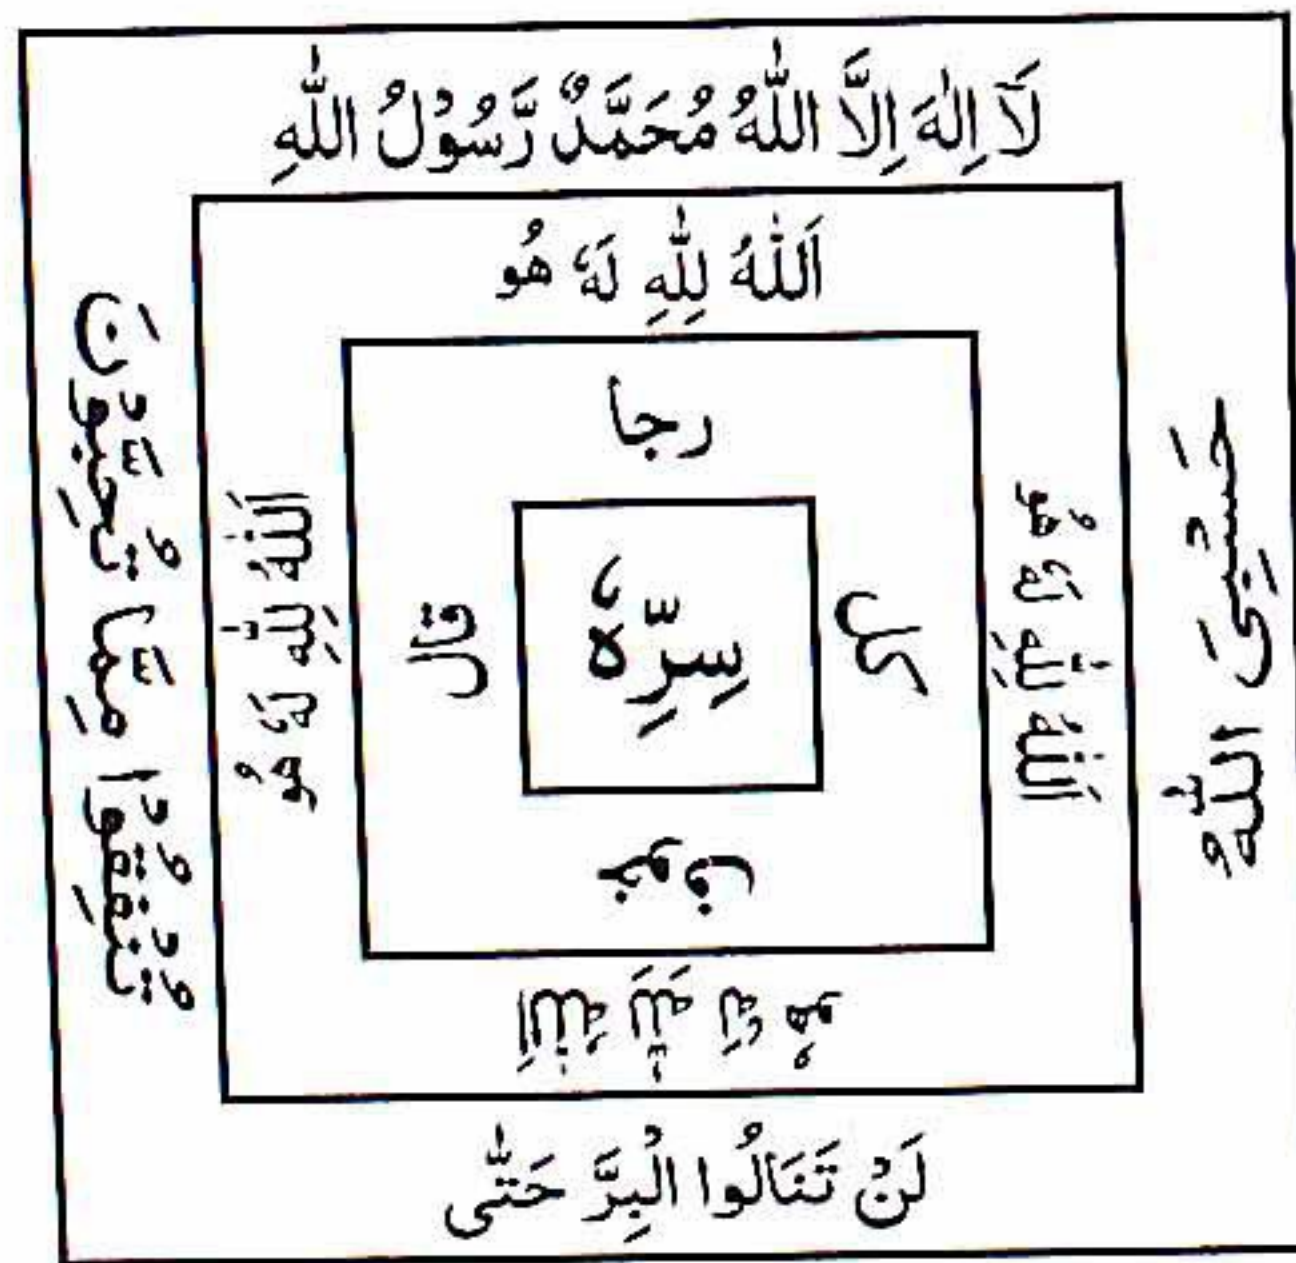 لَآ اِلٰهَ اِلَّا اللّٰهُ مُحَمَّدٌ رَّسُوْلُ اللّٰهِ
حَسْبِیَ اللّٰهُ
لَنْ تَنَالُوا الْبِرَّ حَتّٰی
تُنْفِقُوْا مِمَّا تُحِبُّوْنَ
اَللّٰهُ لِلّٰهِ لَهٗ هُو
اَللّٰهُ لِلّٰهِ لَهٗ هُو
اَللّٰهُ لِلّٰهِ لَهٗ هُو
اَللّٰهُ لِلّٰهِ لَهٗ هُو
رجا
کل
خوف
قال
سِرِّهٗ